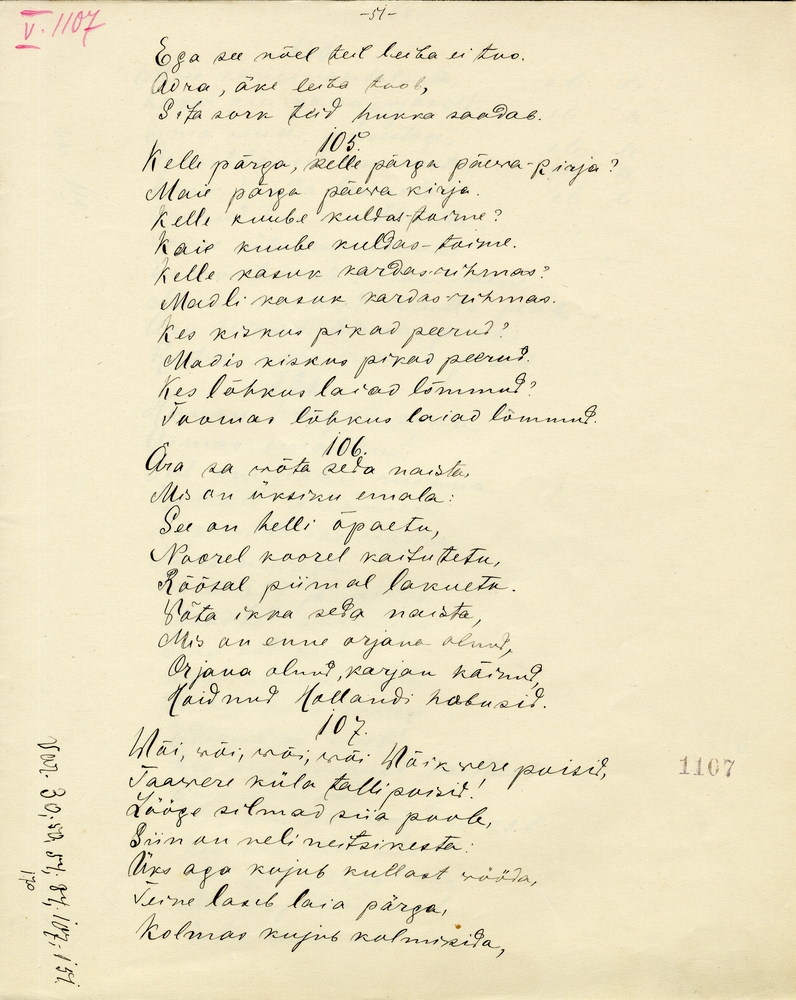 -51-
V. 1107
Ega see nõel teil leiba ei too.
Adra, äke leiba toob,
Sita sork teid hukka saadab.
105.
Kelle pärga, kelle pärga päewa-kirja?
Maie pärga päewa kirja.
Kelle kuube kuldas-toime?
Kaie kuube kuldas-toime.
Kelle kasuk kardas-rihmas?
Madli kasuk kardas-rihmas.
Kes kiskus pikad peerud?
Madis kiskus pikad peerud.
Kes lõhkus laiad lõmmud?
Toomas lõhkus laiad lõmmud.
106.
Ära sa wõta seda naista,
Mis on üksiku emala:
See on helli õpaetu,
Noorel koorel kaitutetu,
Röösal piimal lakuetu.
Wõta ikka seda naista,
Mis on enne orjana olnud,
Orjana olnud, karjan käinud,
Hoidnud Hollandi hobusid.
107.
Wõi, wõi, wõi, wõi Wõikwere poisid,
Taawere küla tallipoisid!
Lööge silmad siia poole,
Siin on neli neitsikesta:
Üks aga kujub kullast wööda,
Teine laseb laia pärga,
Kolmas kujub kolmisida,
1107